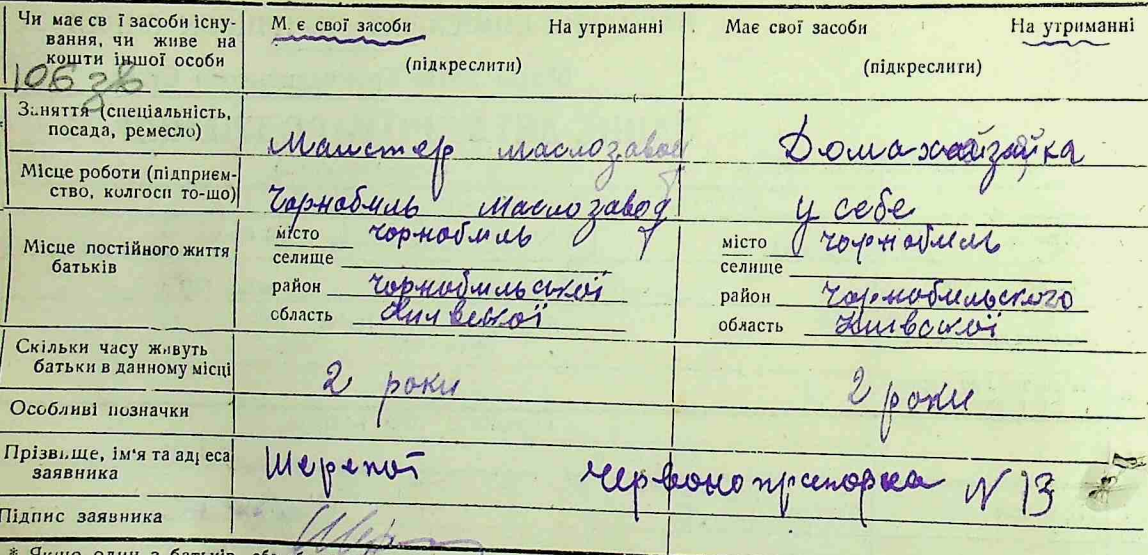 Чи має св ї засоби існування, чи живе на кошти іншої особи
М є свої засоби На утриманні Має свої засоби На утриманні
(підкреслити) (підкреслити)
106
Заняття (спеціальність, посада, ремесло)
Маистер маслозавод Домахайзайка
Місце роботи (підприємство, колгосп то-що)
Чорнобиль маслозавод у себе
Місце постійного життя батьків
місто чорнобиль місто чорнобиль
селище селище
район чорнобильської район чорнобильского
область Київскої область Київскої
Скільки часу живуть батьки в данному місці
2 роки 2 роки
Особливі позначки
Прізвище, ім'я та адреса заявника
червонопрапорна N 13
Підпис заявника
* Якщо один з батьків